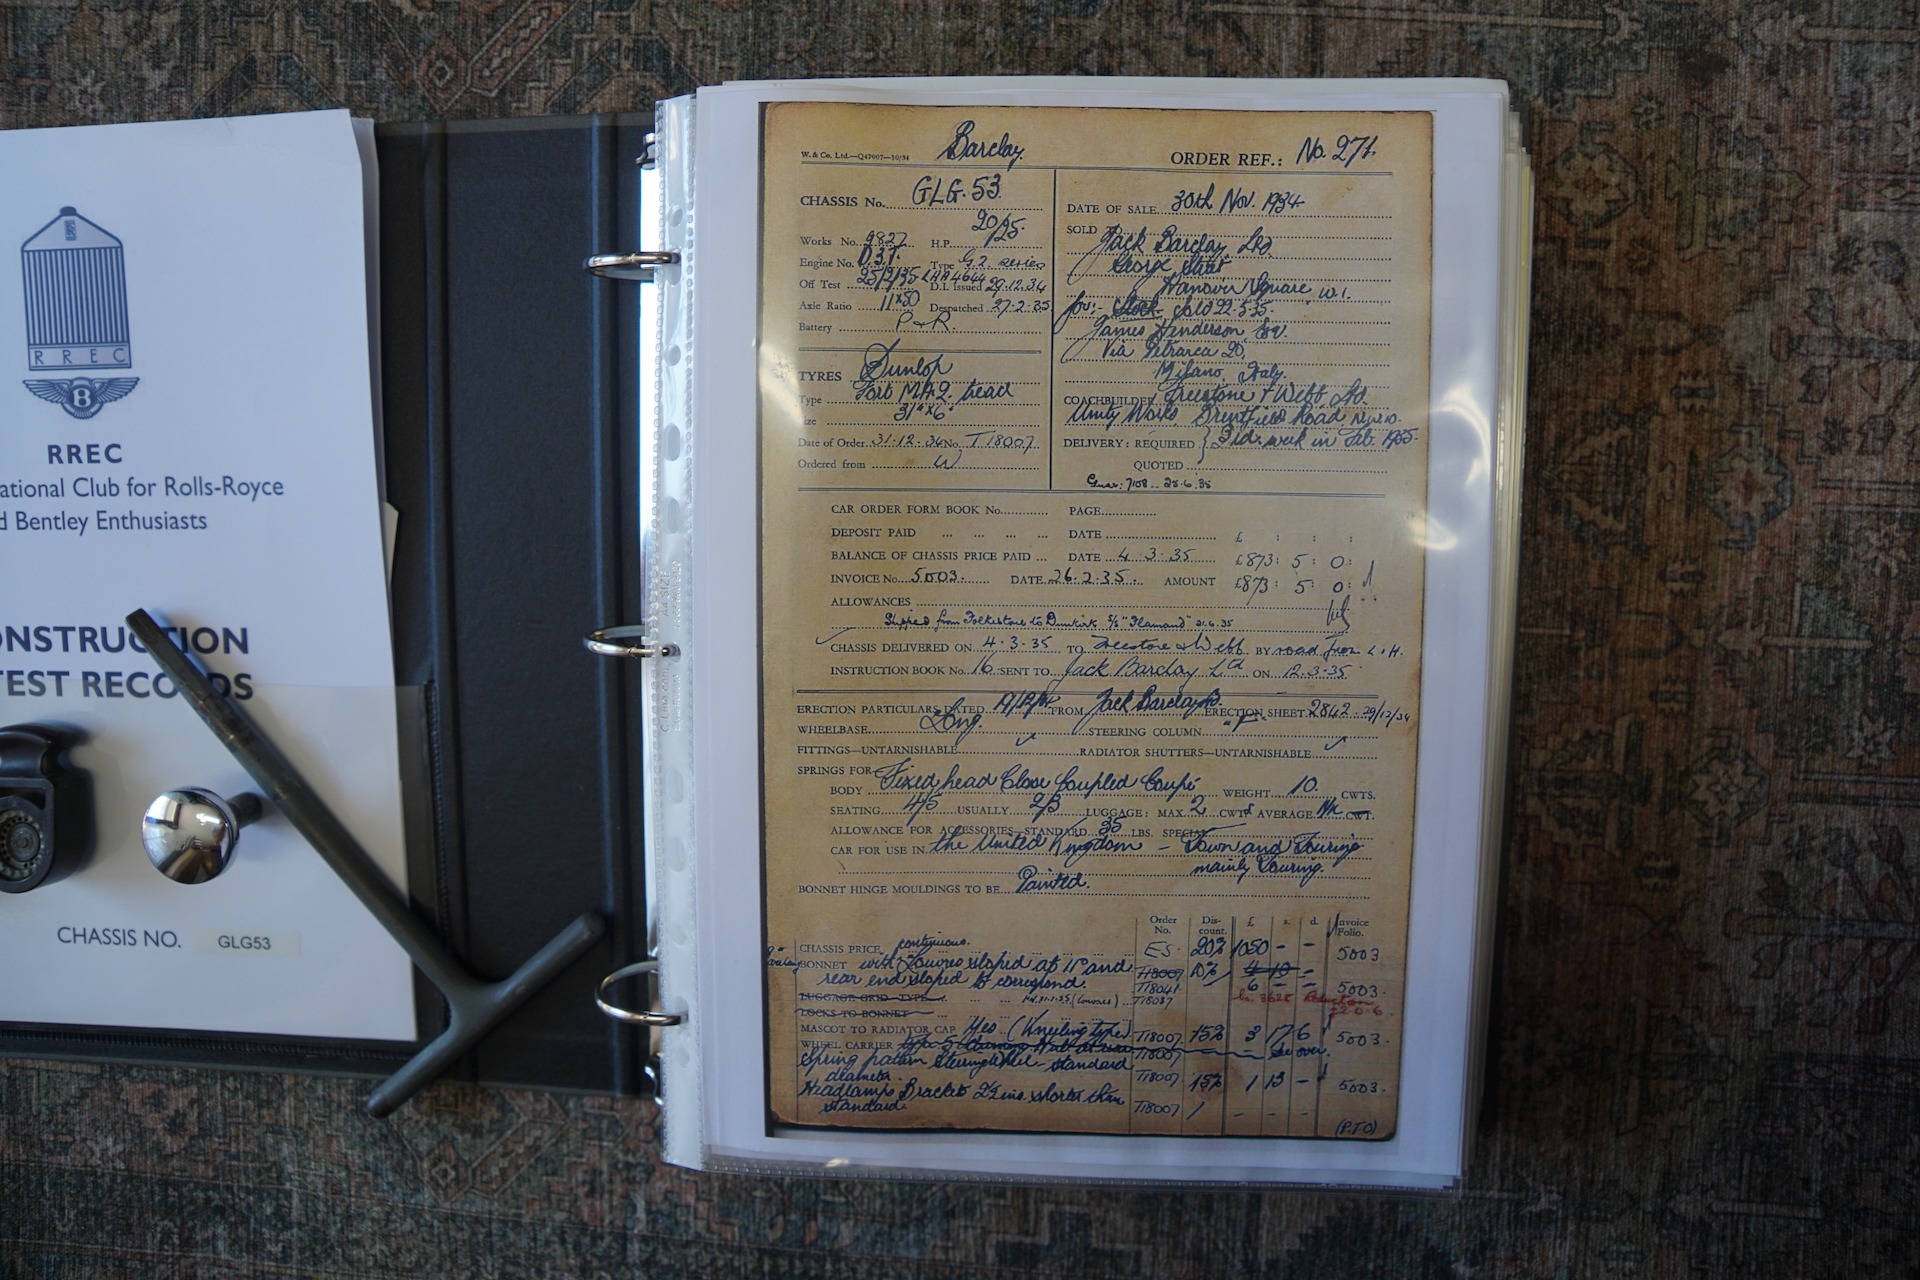 RREC
ational Club for Rolls-Royce
d Bentley Enthusiasts
ONSTRUCTION
TEST RECORDS
CHASSIS NO. GLG53
R R E C
B
W. & Co. Ltd.—Q47007—10/34
Barclay.
ORDER REF.: No. 271.
CHASSIS No. GLG.53.
20/25.
Works No. 9827 H.P.
Engine No. D3T. Type G.2. series
Off Test 25/2/35 LHA4644 D.I. Issued 29.12.34
Axle Ratio 11x50 Despatched 27-2-35
Battery P & R.
TYRES Dunlop
Type Fort MH2. tread
Size 31" x 6"
Date of Order 31-12-34 No. T18007
Ordered from W
DATE OF SALE 30th Nov. 1934
SOLD Jack Barclay Ltd.
George Street
Hanover Square W.1.
for:- Stock sold 22-5-35.
James Henderson Esq.
Via Petrarca 20,
Milano, Italy.
COACHBUILDER Freestone & Webb Ltd.
Unity Works, Brentfield Road, N.W.10.
DELIVERY: REQUIRED 3rd. week in Feb. 1935.
QUOTED
Guar: 7108 .. 25.6.35
CAR ORDER FORM BOOK No. PAGE
DEPOSIT PAID DATE £ : : :
BALANCE OF CHASSIS PRICE PAID DATE 4.3.35 £873: 5: 0:
INVOICE No. 5003. DATE 26.2.35 AMOUNT £873: 5: 0:
ALLOWANCES
Shipped from Folkestone to Dunkirk S/S "Flamand" 21.6.35
CHASSIS DELIVERED ON 4.3.35 TO Freestone & Webb BY road from L.H.
INSTRUCTION BOOK No. 16 SENT TO Jack Barclay Ltd ON 12.3.35.
ERECTION PARTICULARS DATED 19/12/34 FROM Jack Barclay ERECTION SHEET 2842. 29/12/34
WHEELBASE Long. STEERING COLUMN "F"
FITTINGS—UNTARNISHABLE ✓ RADIATOR SHUTTERS—UNTARNISHABLE ✓
SPRINGS FOR
BODY Fixed head Close Coupled Coupé WEIGHT 10. CWTS.
SEATING 4/5 USUALLY 2/3 LUGGAGE: MAX. 2 CWTS AVERAGE CWT.
ALLOWANCE FOR ACCESSORIES—STANDARD 35 LBS. SPECIAL
CAR FOR USE IN the United Kingdom - Town and Touring
mainly Touring.
BONNET HINGE MOULDINGS TO BE Painted.
Order No. Discount. £ s. d. Invoice Folio.
CHASSIS PRICE, continuous. ES. 20% 1050 - - 5003
BONNET with Louvres sloped at 11° and T18007 10% 4 10 -
rear end sloped to correspond. T18041. 6 - - 5003.
LUGGAGE GRID TYPE (Louvres) T18037
LOCKS TO BONNET
MASCOT TO RADIATOR CAP Yes (Kneeling type) T18007 15% 3 17 6 5003.
WHEEL CARRIER T18007 See over.
Spring pattern Steering Wheel - standard
diameter. T18007 15% 1 13 - 5003.
Headlamps Bracket 2½ins. shorter than
standard. T18007 / - - -
(P.T.O)